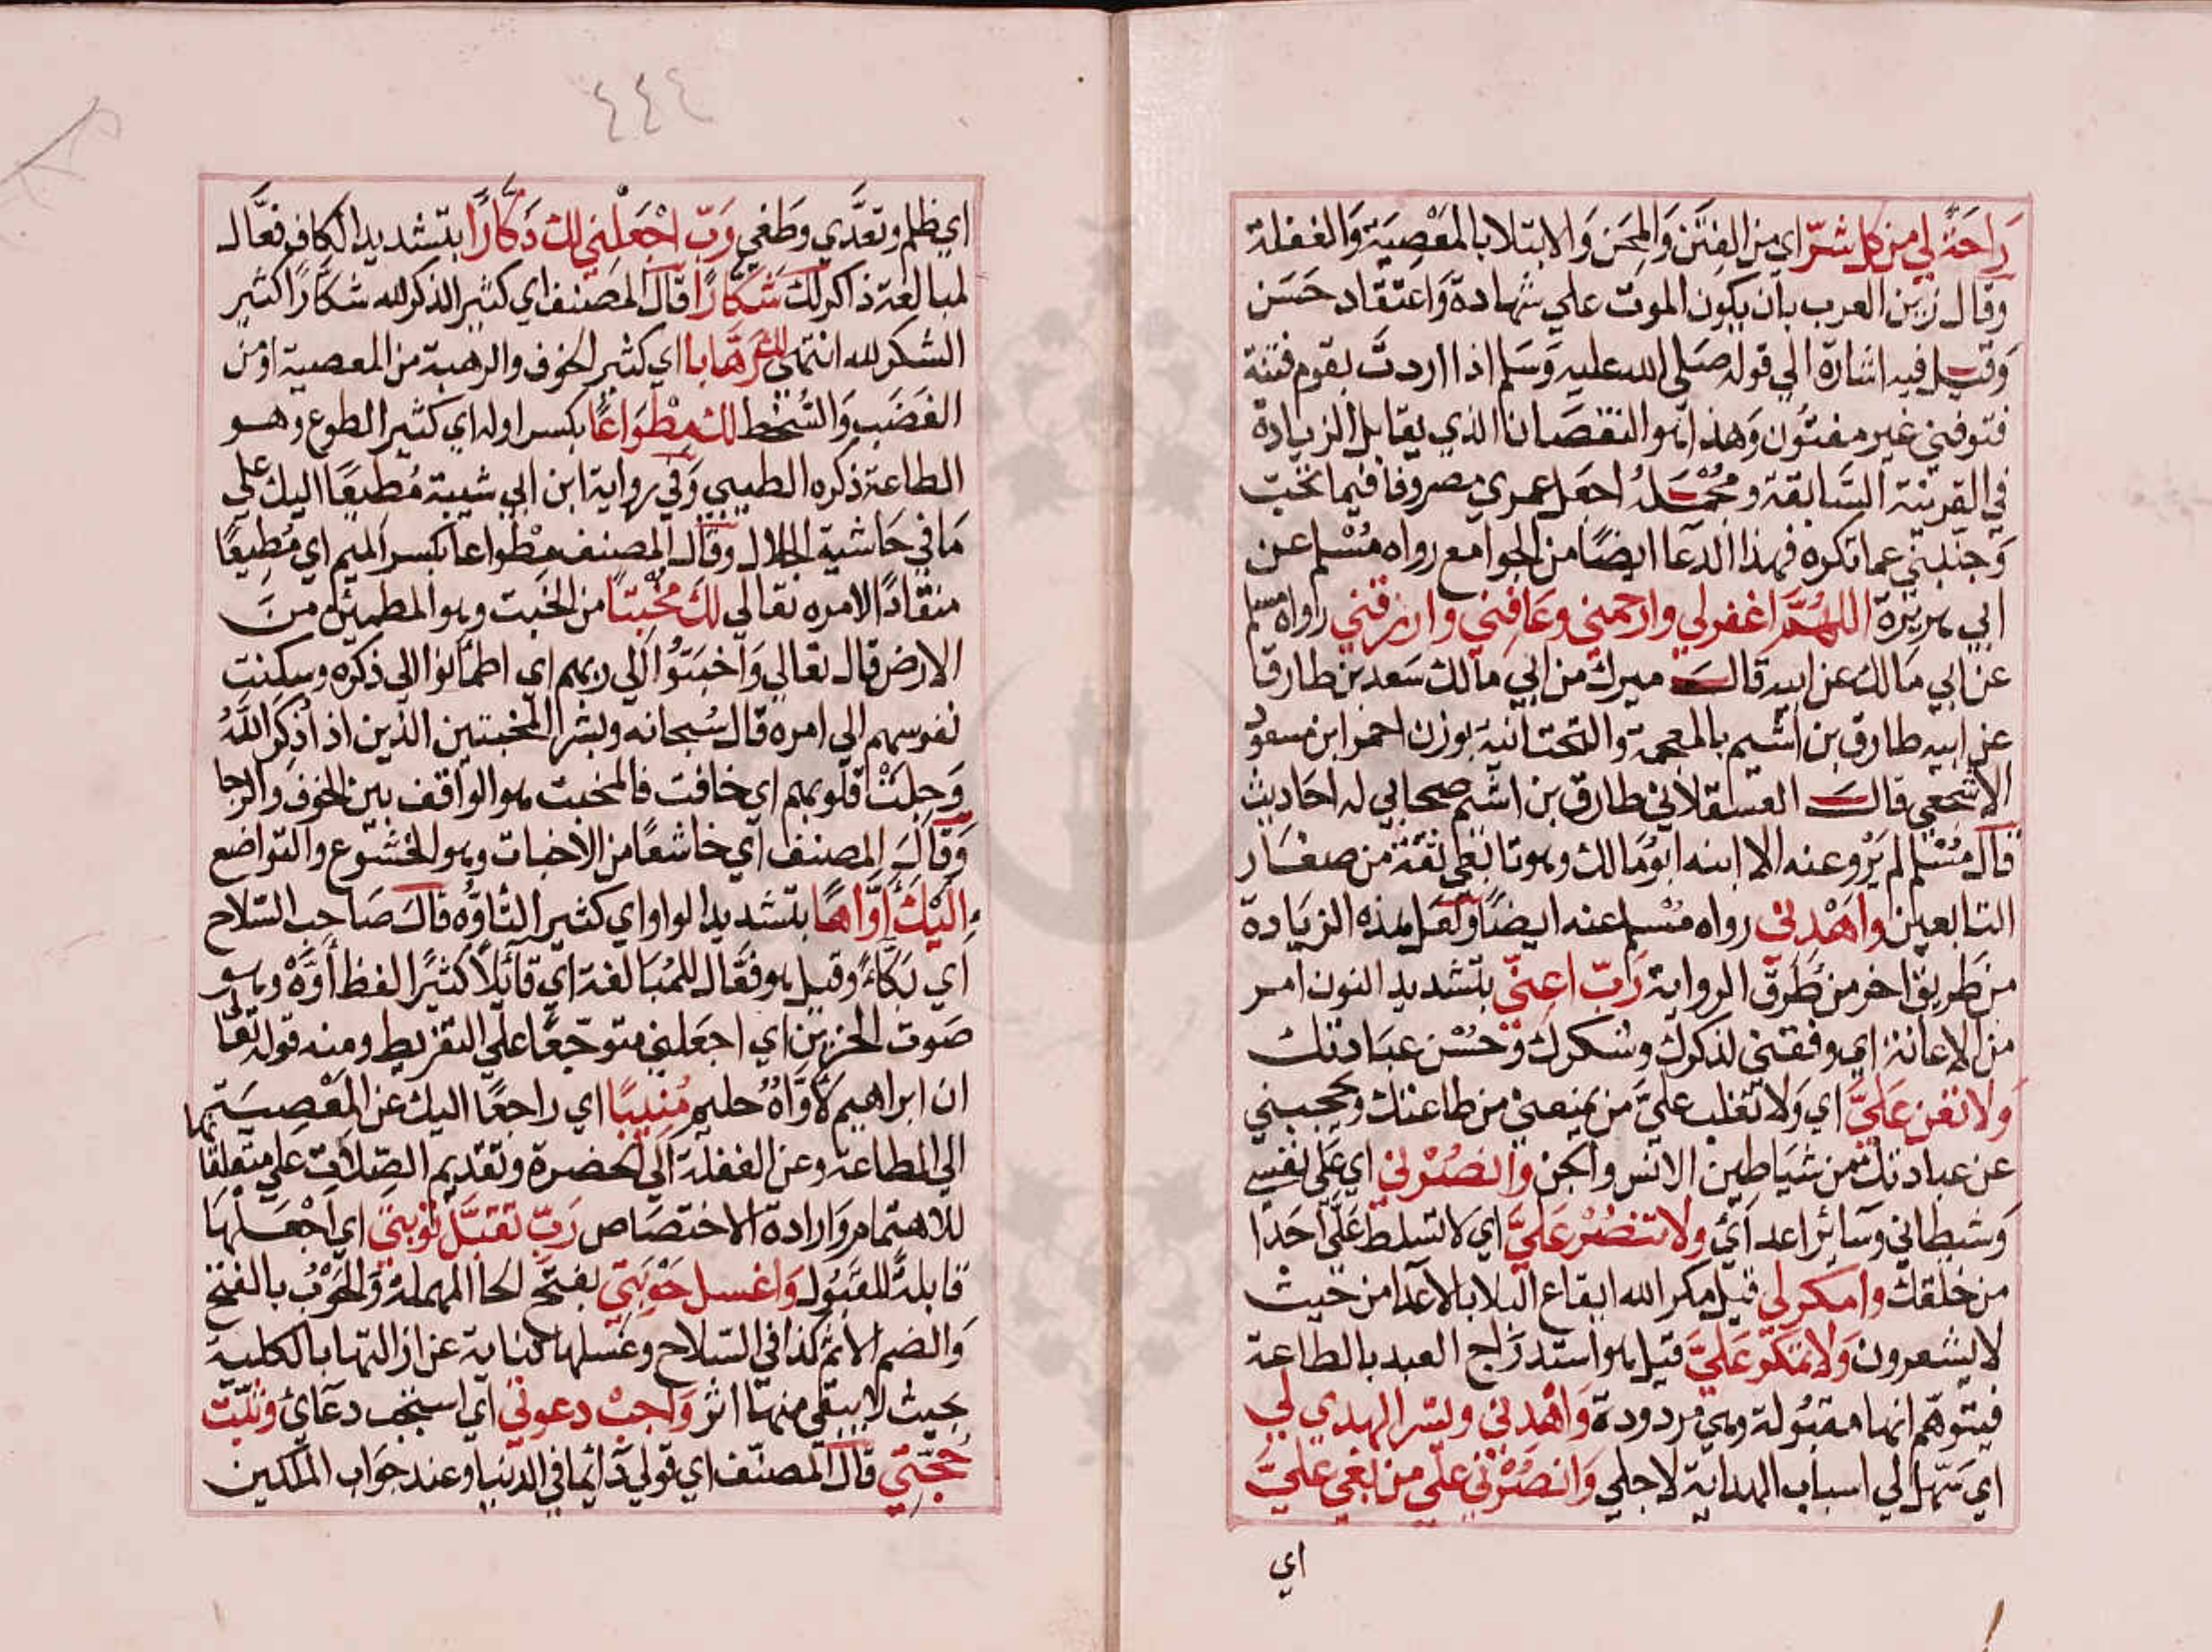 رَاحَةً لي من كل شرّ اي من الفِتَن وَالمِحَن وَالابتلا بالمَعْصِيَة وَالغفلة
وقال زين العرب بان يكون الموت علي شهادة وَاعتقاد حَسَن
وَقيل فيه اشارة الي قوله صَلي الله عليه وَسَلم اذا اردتَّ بقوم فتنة
فتوفني غير مفتُون وَهذا هو النقصَان الذي يقابل الزيادة
في القرينة السَّابقة ومُحْمَلهُ اجعل عمري مصروفا فيما تحبّ
وَجنّبني عما تكره فهذا الدعا ايضًا من الجوامع رواه مُسْلم عن
ابي هريرة اللهُمَّ اغفر لي وارحمني وعَافني وارزقني رواه مسلم
عن ابي مَالك عن ابيه قال ميرك من ابي مالك سَعد بن طارق
عن ابيه طارق بن اشيم بالمعجمة والتحتانية بوزن احمر ابن مسعود
الاشجعي قال العسقلاني طارق بن اشيم صحابي له احَاديث
قال مُسْلم لم يَرْو عنه الا ابنه ابومَالك وهو تابعي ثقة من صغَار
التابعين وَاهْدني رواه مُسْلم عنه ايضًا ولَعَل هذه الزيَادة
من طَريق اخر من طُرق الرواية رَبّ اعِنّي بتشديد النون امر
من الاعانة اي وفقني لذكرك وشكرك وَحُسْن عبَادتك
وَلا تعن عَليَّ اي وَلا تغلب عليَّ من يمنعني من طاعتك ويحجبني
عن عبادتك من شيَاطِين الانس وَالجن وَانصُرْني اي عَلى نفسي
وَشيطاني وسآئر اعدآئ ولا تنصُرْ عَليَّ اي لا تسلط عَليَّ احَدًا
من خلقك وامكر لي قيل مكر الله ايقاع البلا بالاعدا من حيث
لا يشعرون وَلا تمكر عَليَّ قيل هو استدرَاج العبد بالطاعة
فيتوهّم انها مقبُولة وهي مردودة وَاهْدني ويسّر الهدي لي
اي سَهّل لي اسباب الهداية لاجلي وَانصُرْني علي من بغي عليَّ
اي
٤٤٤
اي ظلم وتعَدَّي وطَغي رَبّ اجْعَلني لك ذَكّارًا بتشديد الكاف فعَّال
لمبالغة ذاكر لك شَكّارًا قال المصَنف اي كثير الذكر لله شكّارًا كثير
الشكر لله انتهي لك رَهّابا اي كثير الخوف والرهبة من المعصية او من
الغضَب وَالسُّخط لك مِطْوَاعًا بكسر اوله اي كثير الطوع وهو
الطاعة ذكره الطيبي وَفي رواية ابن ابي شيبة مُطيعًا اليك علي
مَا في حَاشية الجلال وقال المصنف مِطواعا بكسر الميم اي مُطِيعًا
منقادًا لامره تعَالي لكَ مُخْبتًا من الخبت وهو المطمئن منَ
الارض قال تعالي وَاخبَتُوْا الَي ربهم اي اطمأنوا الي ذكره وسكنت
نفوسهم الي امره قال سُبحانه وبشر المخبتين الذين اذا ذكِرَ اللَّهُ
وَجِلتْ قلوبهم اي خافت فالمخبت هو الواقف بين الخوف والرجا
وَقالَ المصنف اي خاشعًا من الاخبات وهو الخشوع والتواضع
اِلَيْكَ أَوَّاهًا بتشديد الواو اي كثير التأوُّه قال صَاحب السّلاح
اي بَكّاءً وقيل هو فعَّال للمُبَالغة اي قآئلًا كثيرًا لفظ أَوَّهْ وهو
صَوت الحزين اي اجعَلني متوجّعًا علي التفريط ومنه قوله تعَالَى
ان ابراهيم لَأَوَّاهٌ حليم مُنِيبًا اي راجعًا اليك عن المعْصِيَة
الي الطاعة وعن الغفلة الي الحضرة وتقديم الصّلات علي متعلقاتها
للاهتمام وَارادة الاختصَاص رَبّ تقبَّل توبتي اي اجْعَلهَا
قابلةً للقبُول وَاغسل حَوْبَتي بفتح الحا المهملة وَالحَوْبُ بالفتح
وَالضم الاثم كذا في السّلاح وغسلها كناية عن ازالتها بالكلية
بحيث لا يبقي منها اثر وَاجبْ دعوتي اي استجب دعآئ وثبّت
حُجّتي قال المصنّف اي قولي دآئما في الدنيا وعند جوَاب الملكين